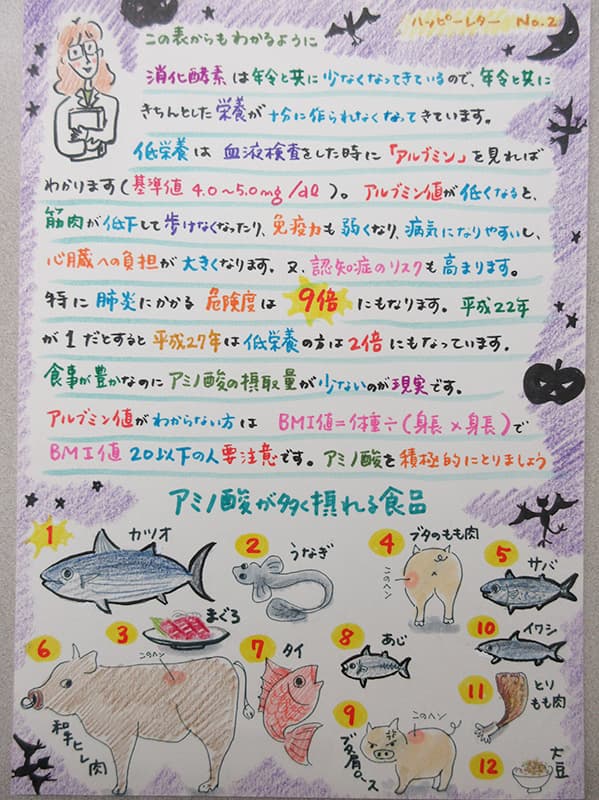 ハッピーレター No.2
この表からもわかるように
消化酵素は年令と共に少なくなってきているので、年令と共に
きちんとした栄養が十分に作られなくなってきています。
低栄養は血液検査をした時に「アルブミン」を見れば
わかります(基準値 4.0〜5.0mg/dl)。アルブミン値が低くなると、
筋肉が低下して歩けなくなったり、免疫力も弱くなり、病気になりやすいし、
心臓への負担が大きくなります。又、認知症のリスクも高まります。
特に肺炎にかかる危険度は9倍にもなります。平成22年
が1だとすると平成27年は低栄養の方は2倍にもなっています。
食事が豊かなのにアミノ酸の摂取量が少ないのが現実です。
アルブミン値がわからない方は BMI値=体重÷(身長×身長)で
BMI値20以下の人要注意です。アミノ酸を積極的にとりましょう
アミノ酸が多く摂れる食品
1 カツオ
2 うなぎ
3 まぐろ
4 ブタのもも肉
このヘン
5 サバ
6 和牛ヒレ肉
このヘン
7 タイ
8 あじ
9 ブタ肩ロース
このヘン
10 イワシ
11 とりもも肉
12 大豆